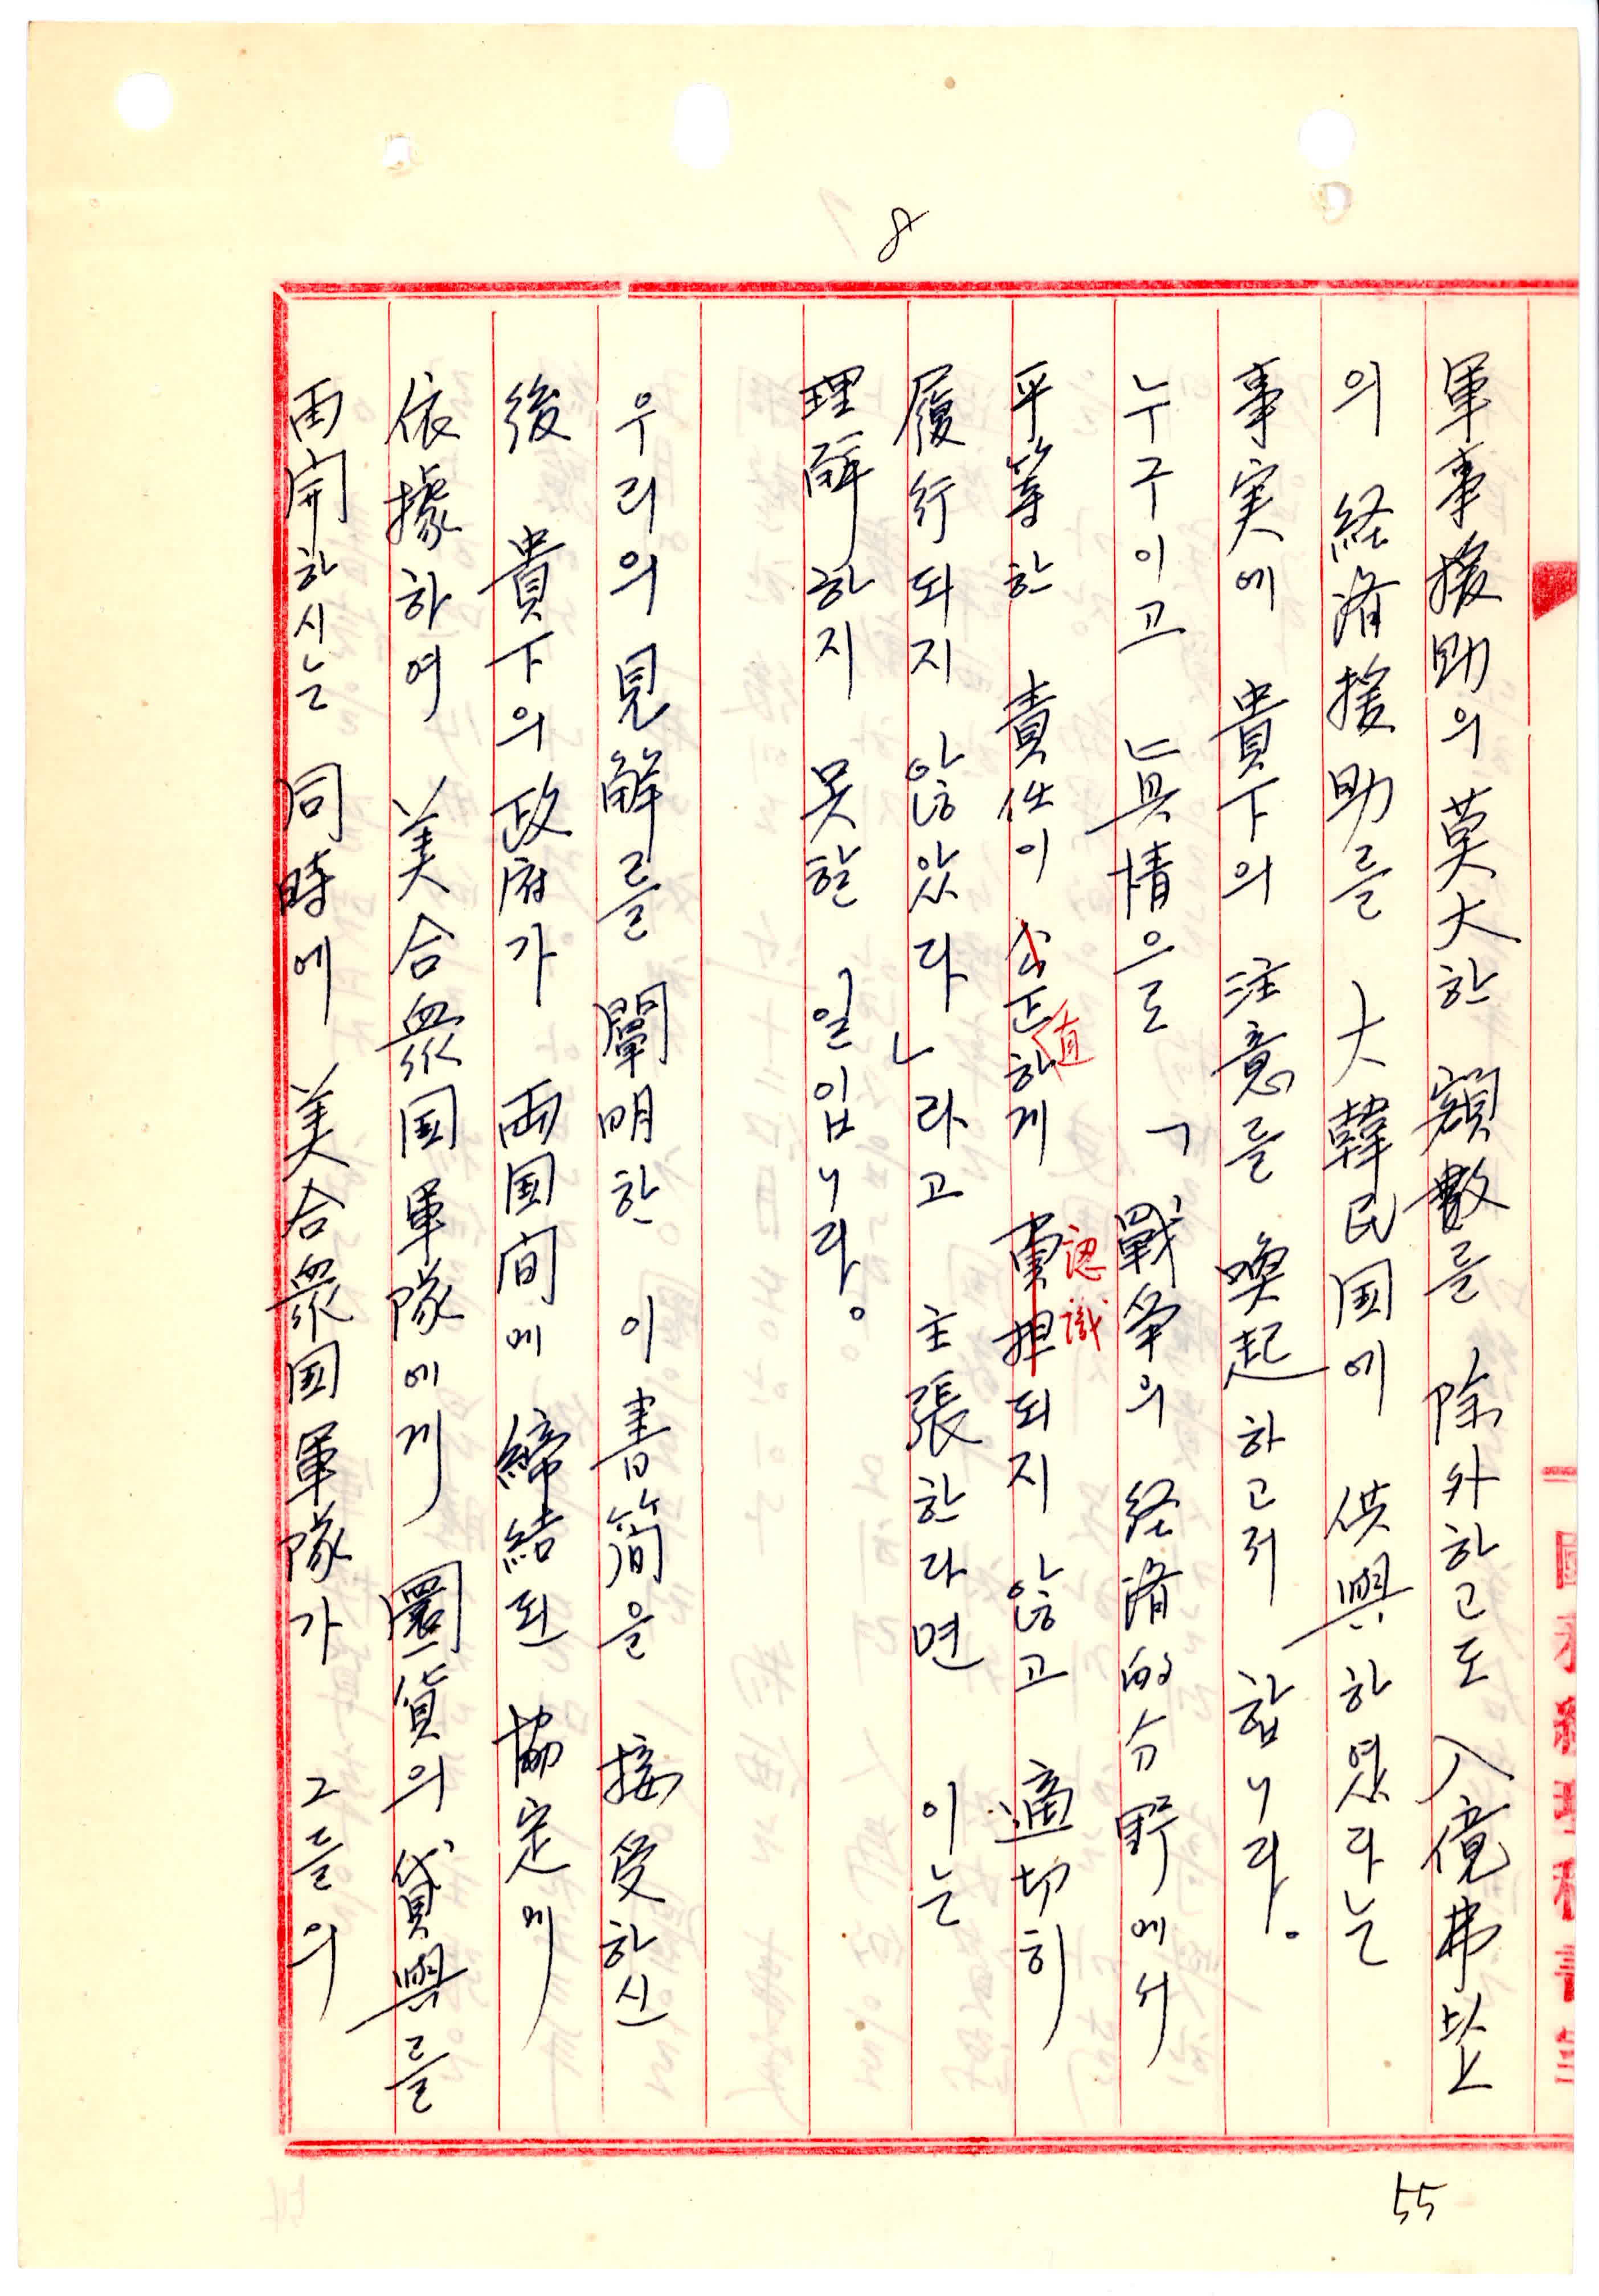 8
軍事援助의 莫大한 額數를 除外하고도 八億弗以上
의 経済援助를 大韓民国에 供與하였다는
事実에 貴下의 注意를 喚起하고저 합니다.
누구이고 眞情으로 「戰争의 経済的分野에서
平等한 責任이 公正하게 負担되지 않고 適切히
直
認識
履行되지 않았다」라고 主張한다면 이는
理解하지 못할 일입니다。
우리의 見解를 闡明한 이 書簡을 接受하신
後 貴下의 政府가 両国间에 締結된 協定에
依據하여 美合衆国軍隊에게 圜貨의 貸與를
再開하시는 同時에 美合衆国軍隊가 그들의
55